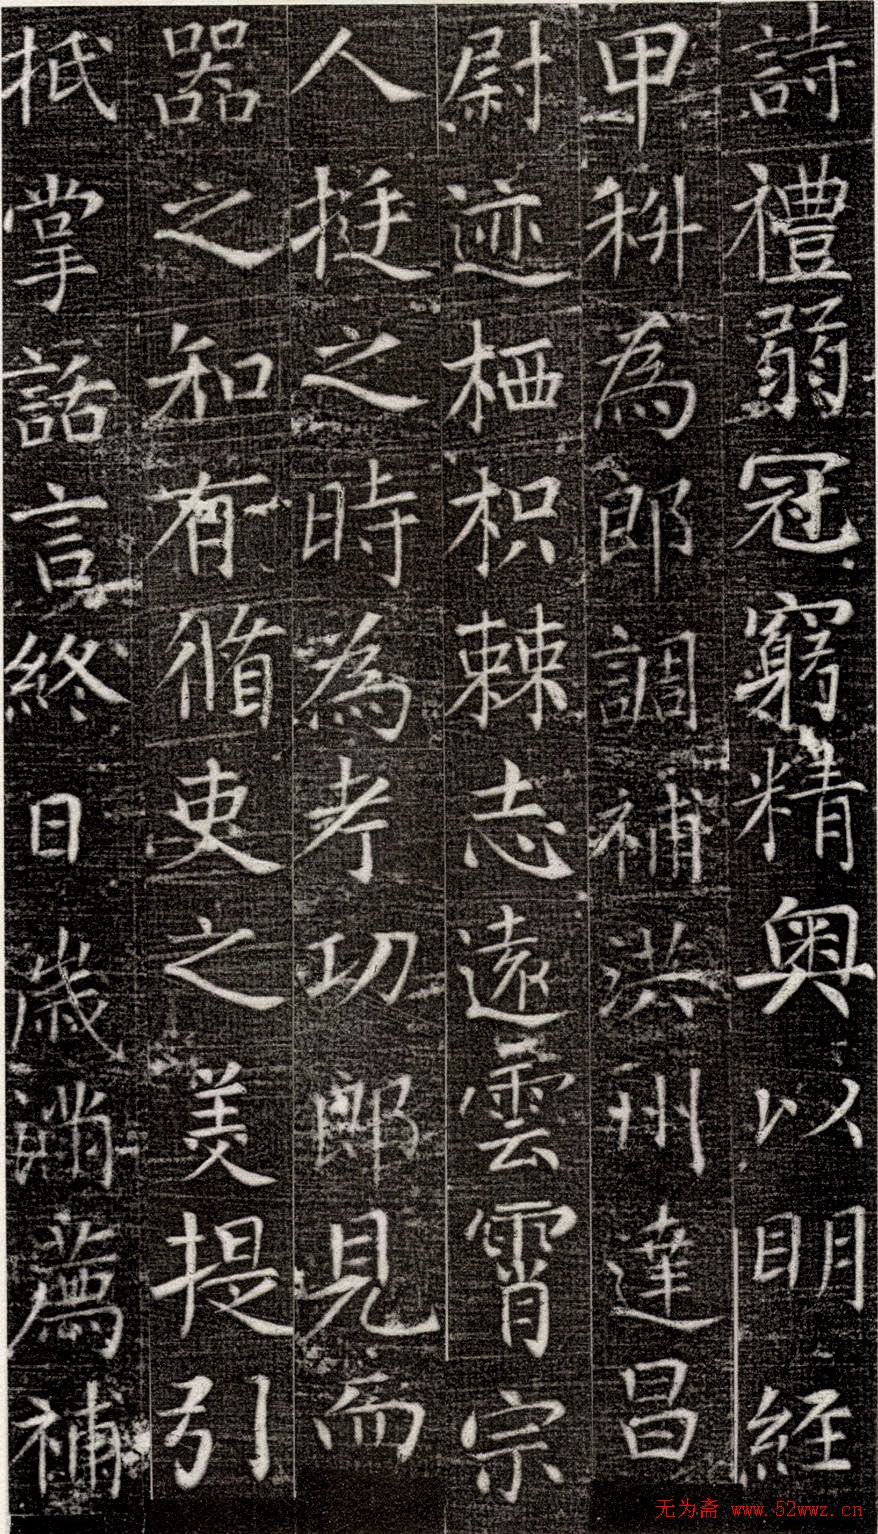 詩禮弱冠窮精奧以明經
甲科為郎調補洪州達昌
尉迹栖枳棘志遠雲霄宗
人挺之時為考功郎見而
器之知有脩吏之美提引
抵掌話言終日歲滿薦補
无为斋 www.52wwz.cn